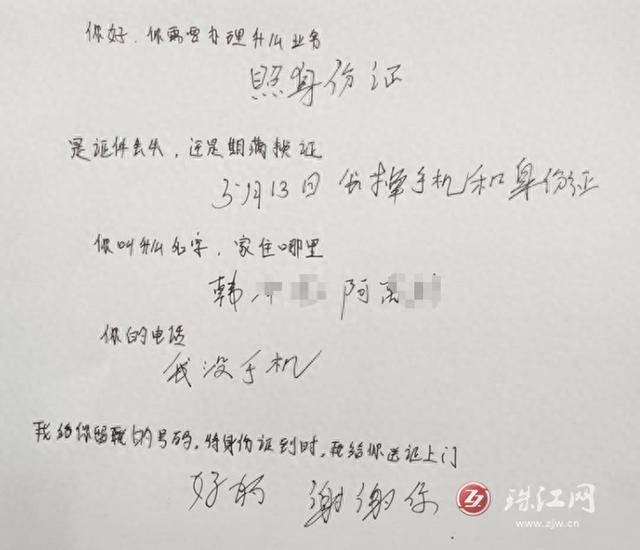 你好，你需要办理什么业务
照身份证
是证件丢失，还是期满换证
5月13日 丢掉手机和身份证
你叫什么名字，家住哪里
韩 阿
你的电话
我没手机
我给你留我的号码，待身份证到时，我给你送证上门
好的 谢谢你
珠江网
www.zjw.cn